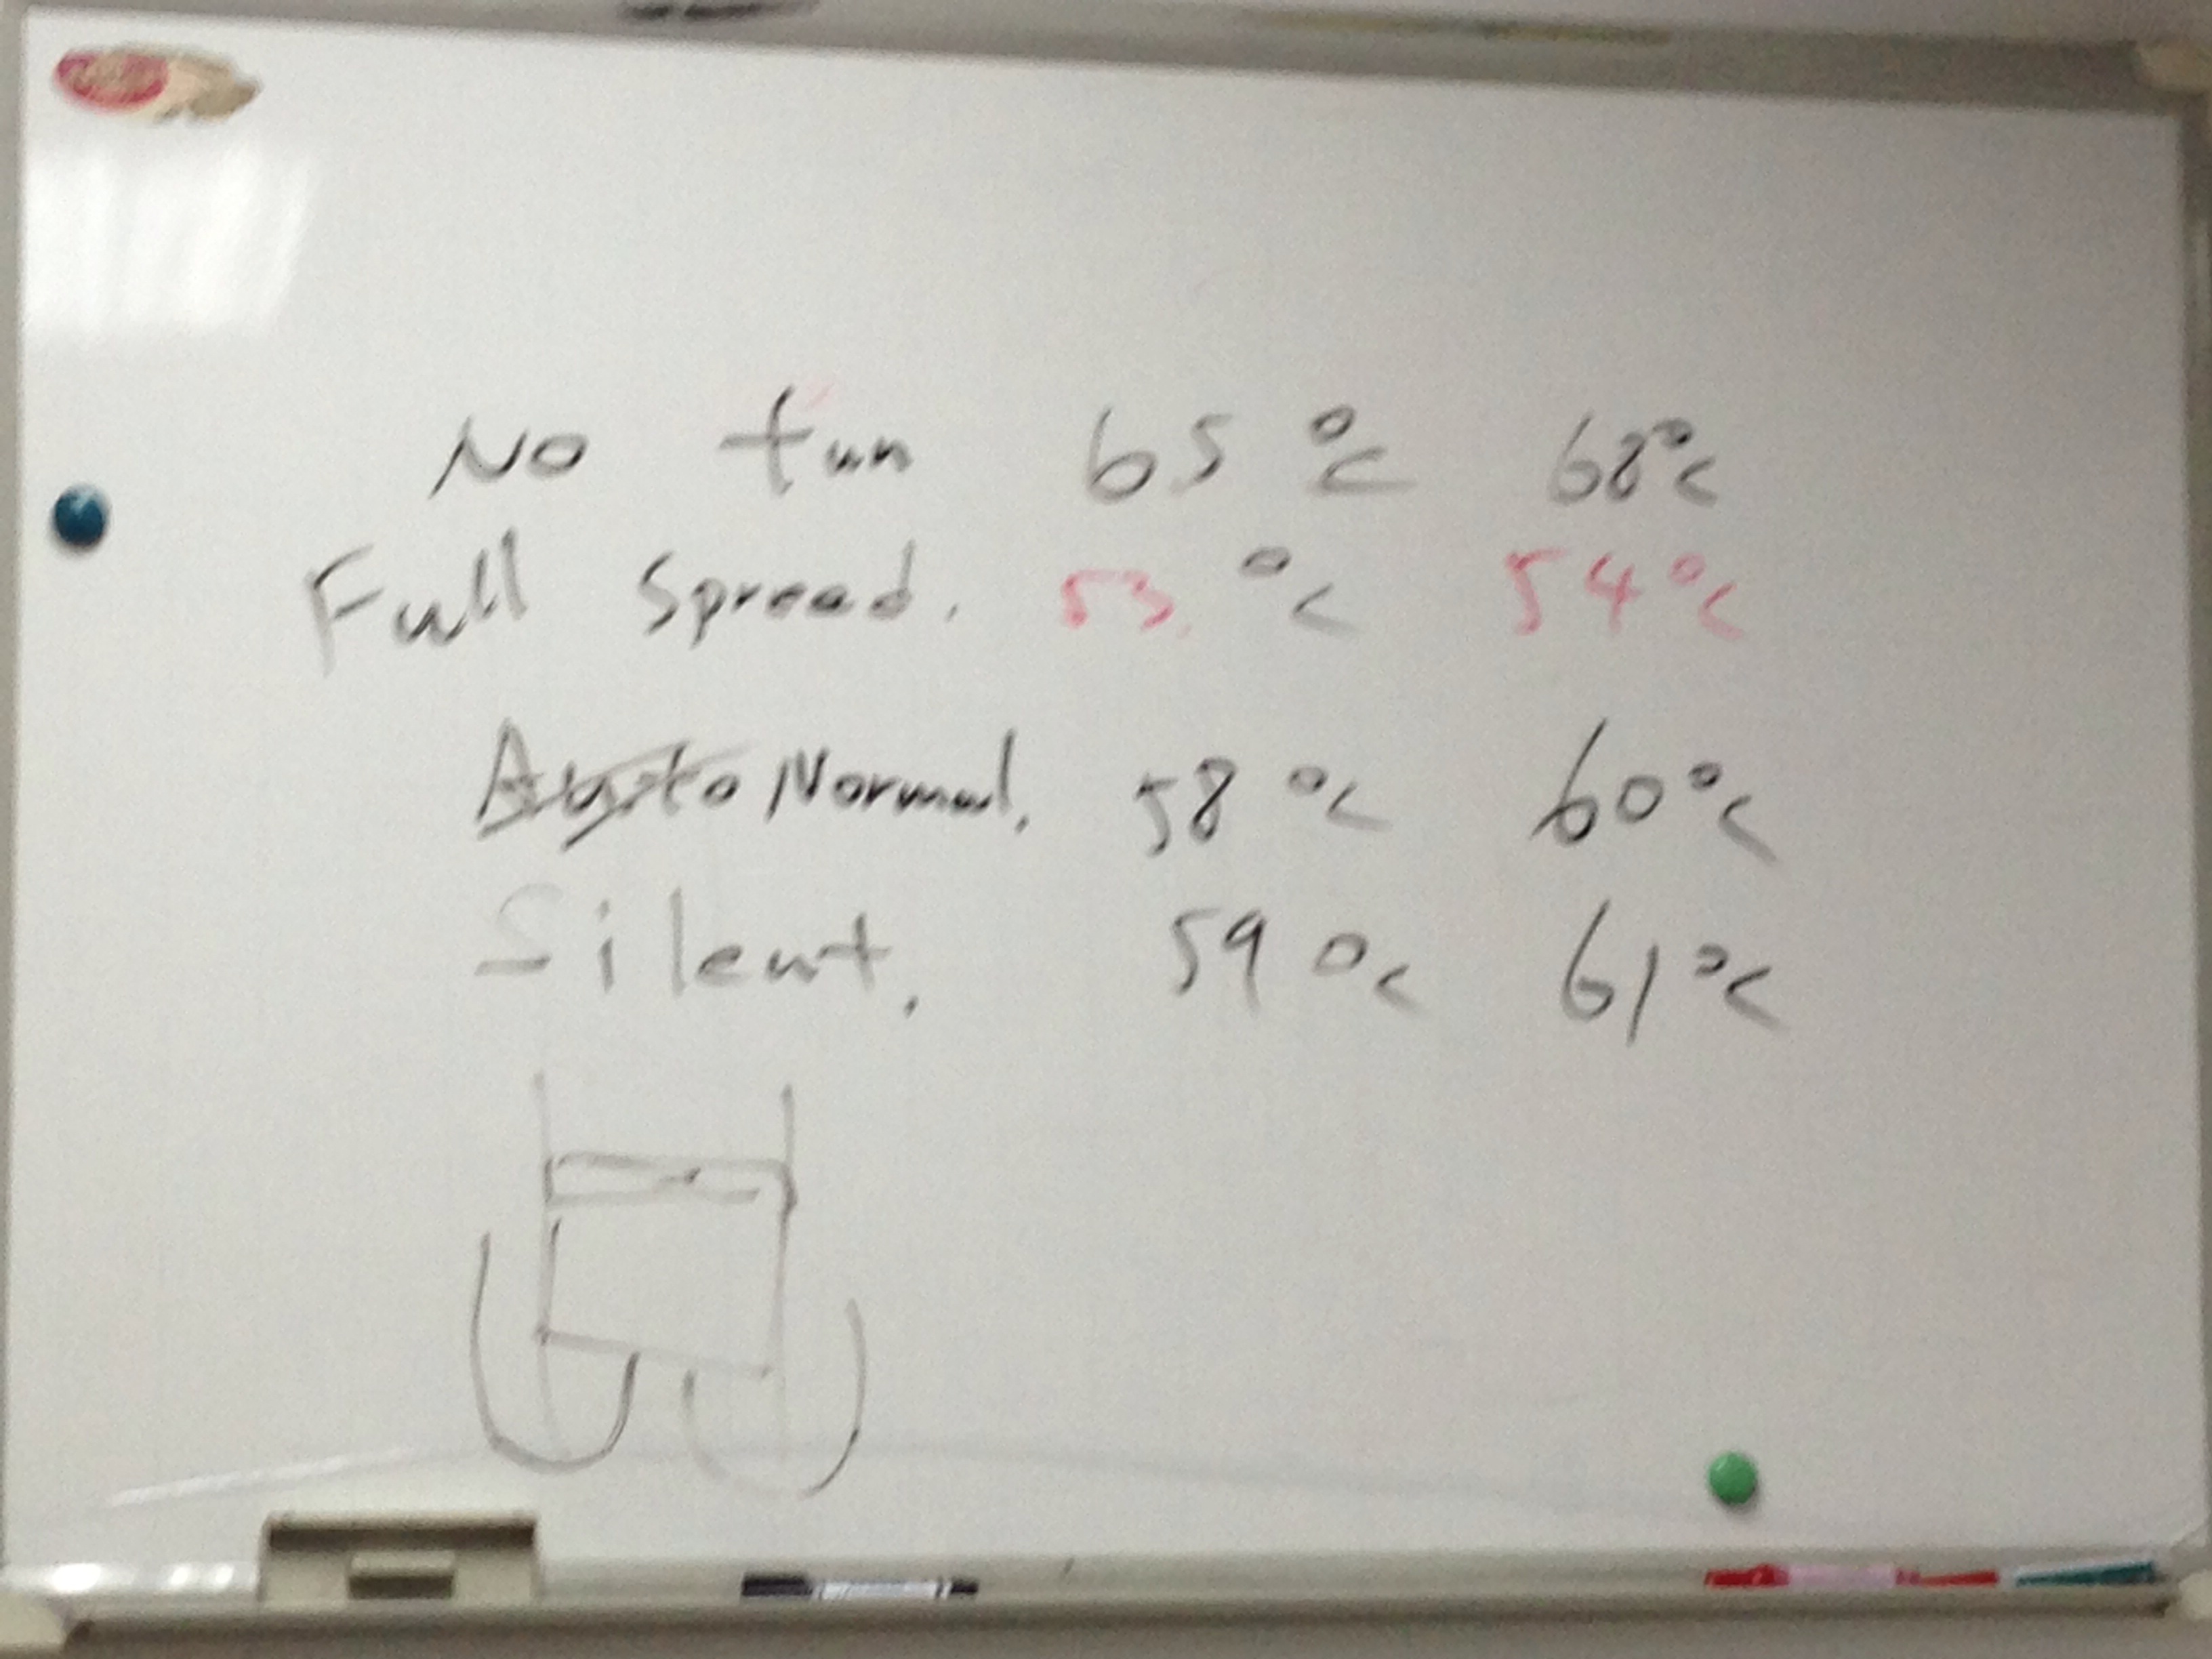 No fan 65 °C 68°C
Full Spread. 53. °C 54°C
Auto Normal. 58 °C 60°C
Silent. 59 °C 61°C